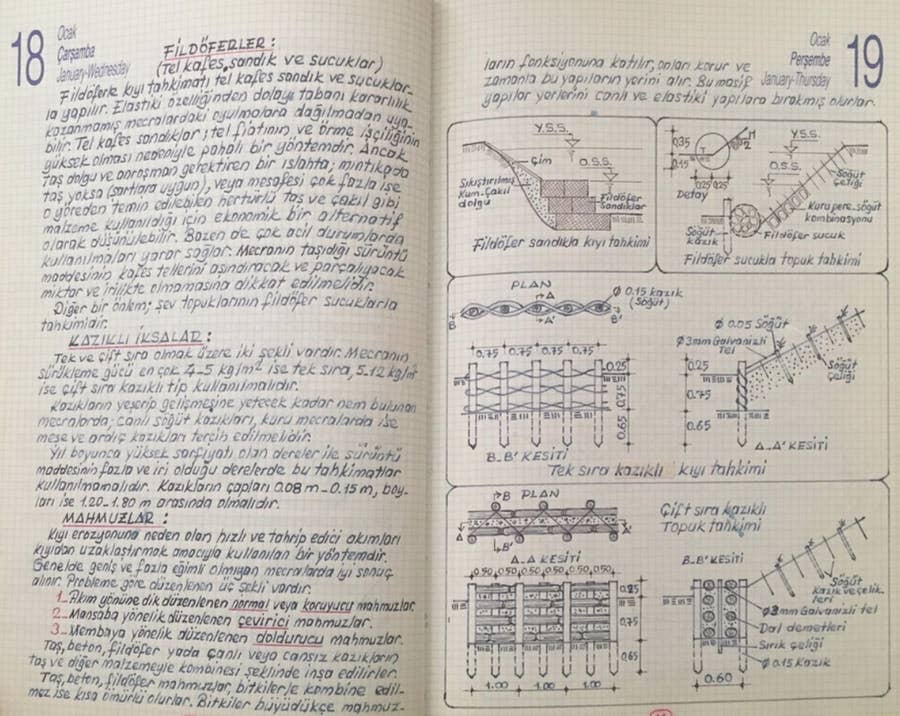 18
Ocak
Çarşamba
January-Wednesday
FİLDÖFERLER :
(Tel kafes, sandık ve sucuklar)
Fildöferle kıyı tahkimatı tel kafes sandık ve sucuklar-
la yapılır. Elastiki özelliğinden dolayı tabanı kararlılık
kazanmamış mecralardaki oyulmalara dağılmadan uya-
bilir. Tel kafes sandıklar ; tel fiatının ve örme işçiliğinin
yüksek olması nedeniyle pahalı bir yöntemdir. Ancak
taş dolgu ve anroşman gerektiren bir ıslahta; mıntıkada
taş yoksa (şartlara uygun), veya mesafesi çok fazla ise
o yöreden temin edilebilen hertürlü taş ve çakıl gibi
malzeme kullanıldığı için ekonomik bir alternatif
olarak düşünülebilir. Bazen de çok acil durumlarda
kullanılmaları yarar sağlar. Mecranın taşıdığı sürüntü
maddesinin kafes tellerini aşındıracak ve parçalıyacak
miktar ve irilikte olmamasına dikkat edilmelidir.
Diğer bir önlem; şev topuklarının fildöfer sucuklarla
tahkimidir.
KAZIKLI İKSALAR :
Tek ve çift sıra olmak üzere iki şekli vardır. Mecranın
sürükleme gücü en çok 4-5 kg/m² ise tek sıra, 5-12 kg/m²
ise çift sıra kazıklı tip kullanılmalıdır.
Kazıkların yeşerip gelişmesine yetecek kadar nem bulunan
mecralarda; canlı söğüt kazıkları, kuru mecralarda ise
meşe ve ardıç kazıkları tercih edilmelidir.
Yıl boyunca yüksek sarfiyatı olan dereler ile sürüntü
maddesinin fazla ve iri olduğu derelerde bu tahkimatlar
kullanılmamalıdır. Kazıkların çapları 0.08 m - 0.15 m, boy-
ları ise 1.20 - 1.80 m arasında olmalıdır.
MAHMUZLAR :
Kıyı erozyonuna neden olan hızlı ve tahrip edici akımları
kıyıdan uzaklaştırmak amacıyla kullanılan bir yöntemdir.
Genelde geniş ve fazla eğimli olmıyan mecralarda iyi sonuç
alınır. Probleme göre düzenlenen üç şekli vardır.
1_ Akım yönüne dik düzenlenen normal veya koruyucu mahmuzlar.
2_ Mansaba yönelik düzenlenen çevirici mahmuzlar.
3_ Membaya yönelik düzenlenen doldurucu mahmuzlar.
Taş, beton, fildöfer yada canlı veya cansız kazıkların
taş ve diğer malzemeyle kombinesi şeklinde inşa edilirler.
Taş, beton, fildöfer mahmuzlar, bitkilerle kombine edil-
mez ise kısa ömürlü olurlar. Bitkiler büyüdükçe mahmuz-
Ocak
Perşembe
January-Thursday
19
ların fonksiyonuna katılır, onları korur ve
zamanla bu yapıların yerini alır. Bu masif
yapılar yerlerini canlı ve elastiki yapılara bırakmış olurlar.
Y.S.S.
Çim
O.S.S.
Sıkıştırılmış
Kum-Çakıl
dolgu
Fildöfer
Sandıklar
Fildöfer sandıkla kıyı tahkimi
0.35
0.15
T
H
2
0.25 0.25
Detay
Y.S.S.
O.S.S.
Söğüt
çeliği
Kuru pere. söğüt
kombinasyonu
Söğüt
kazık
Fildöfer sucuk
Fildöfer sucukla topuk tahkimi
PLAN
A
A'
B
B'
Ø 0.15 kazık
(Söğüt)
0.75 0.75 0.75 0.75
0.25
0.75
0.65
B-B' KESİTİ
Ø 0.05 Söğüt
Ø3mm Galvanizli
Tel
0.25
0.75
0.65
Söğüt
Çeliği
A-A' KESİTİ
Tek sıra kazıklı kıyı tahkimi
B PLAN
A
B'
A-A KESİTİ
0.50 0.50 0.50 0.50 0.50 0.50
0.75
0.65
1.00 1.00 1.00
Çift sıra kazıklı
Topuk tahkimi
B-B' KESİTİ
Söğüt
Kazık ve çelik-
leri
Ø3mm Galvanizli tel
Dal demetleri
Sırık çeliği
Ø 0.15 Kazık
0.60